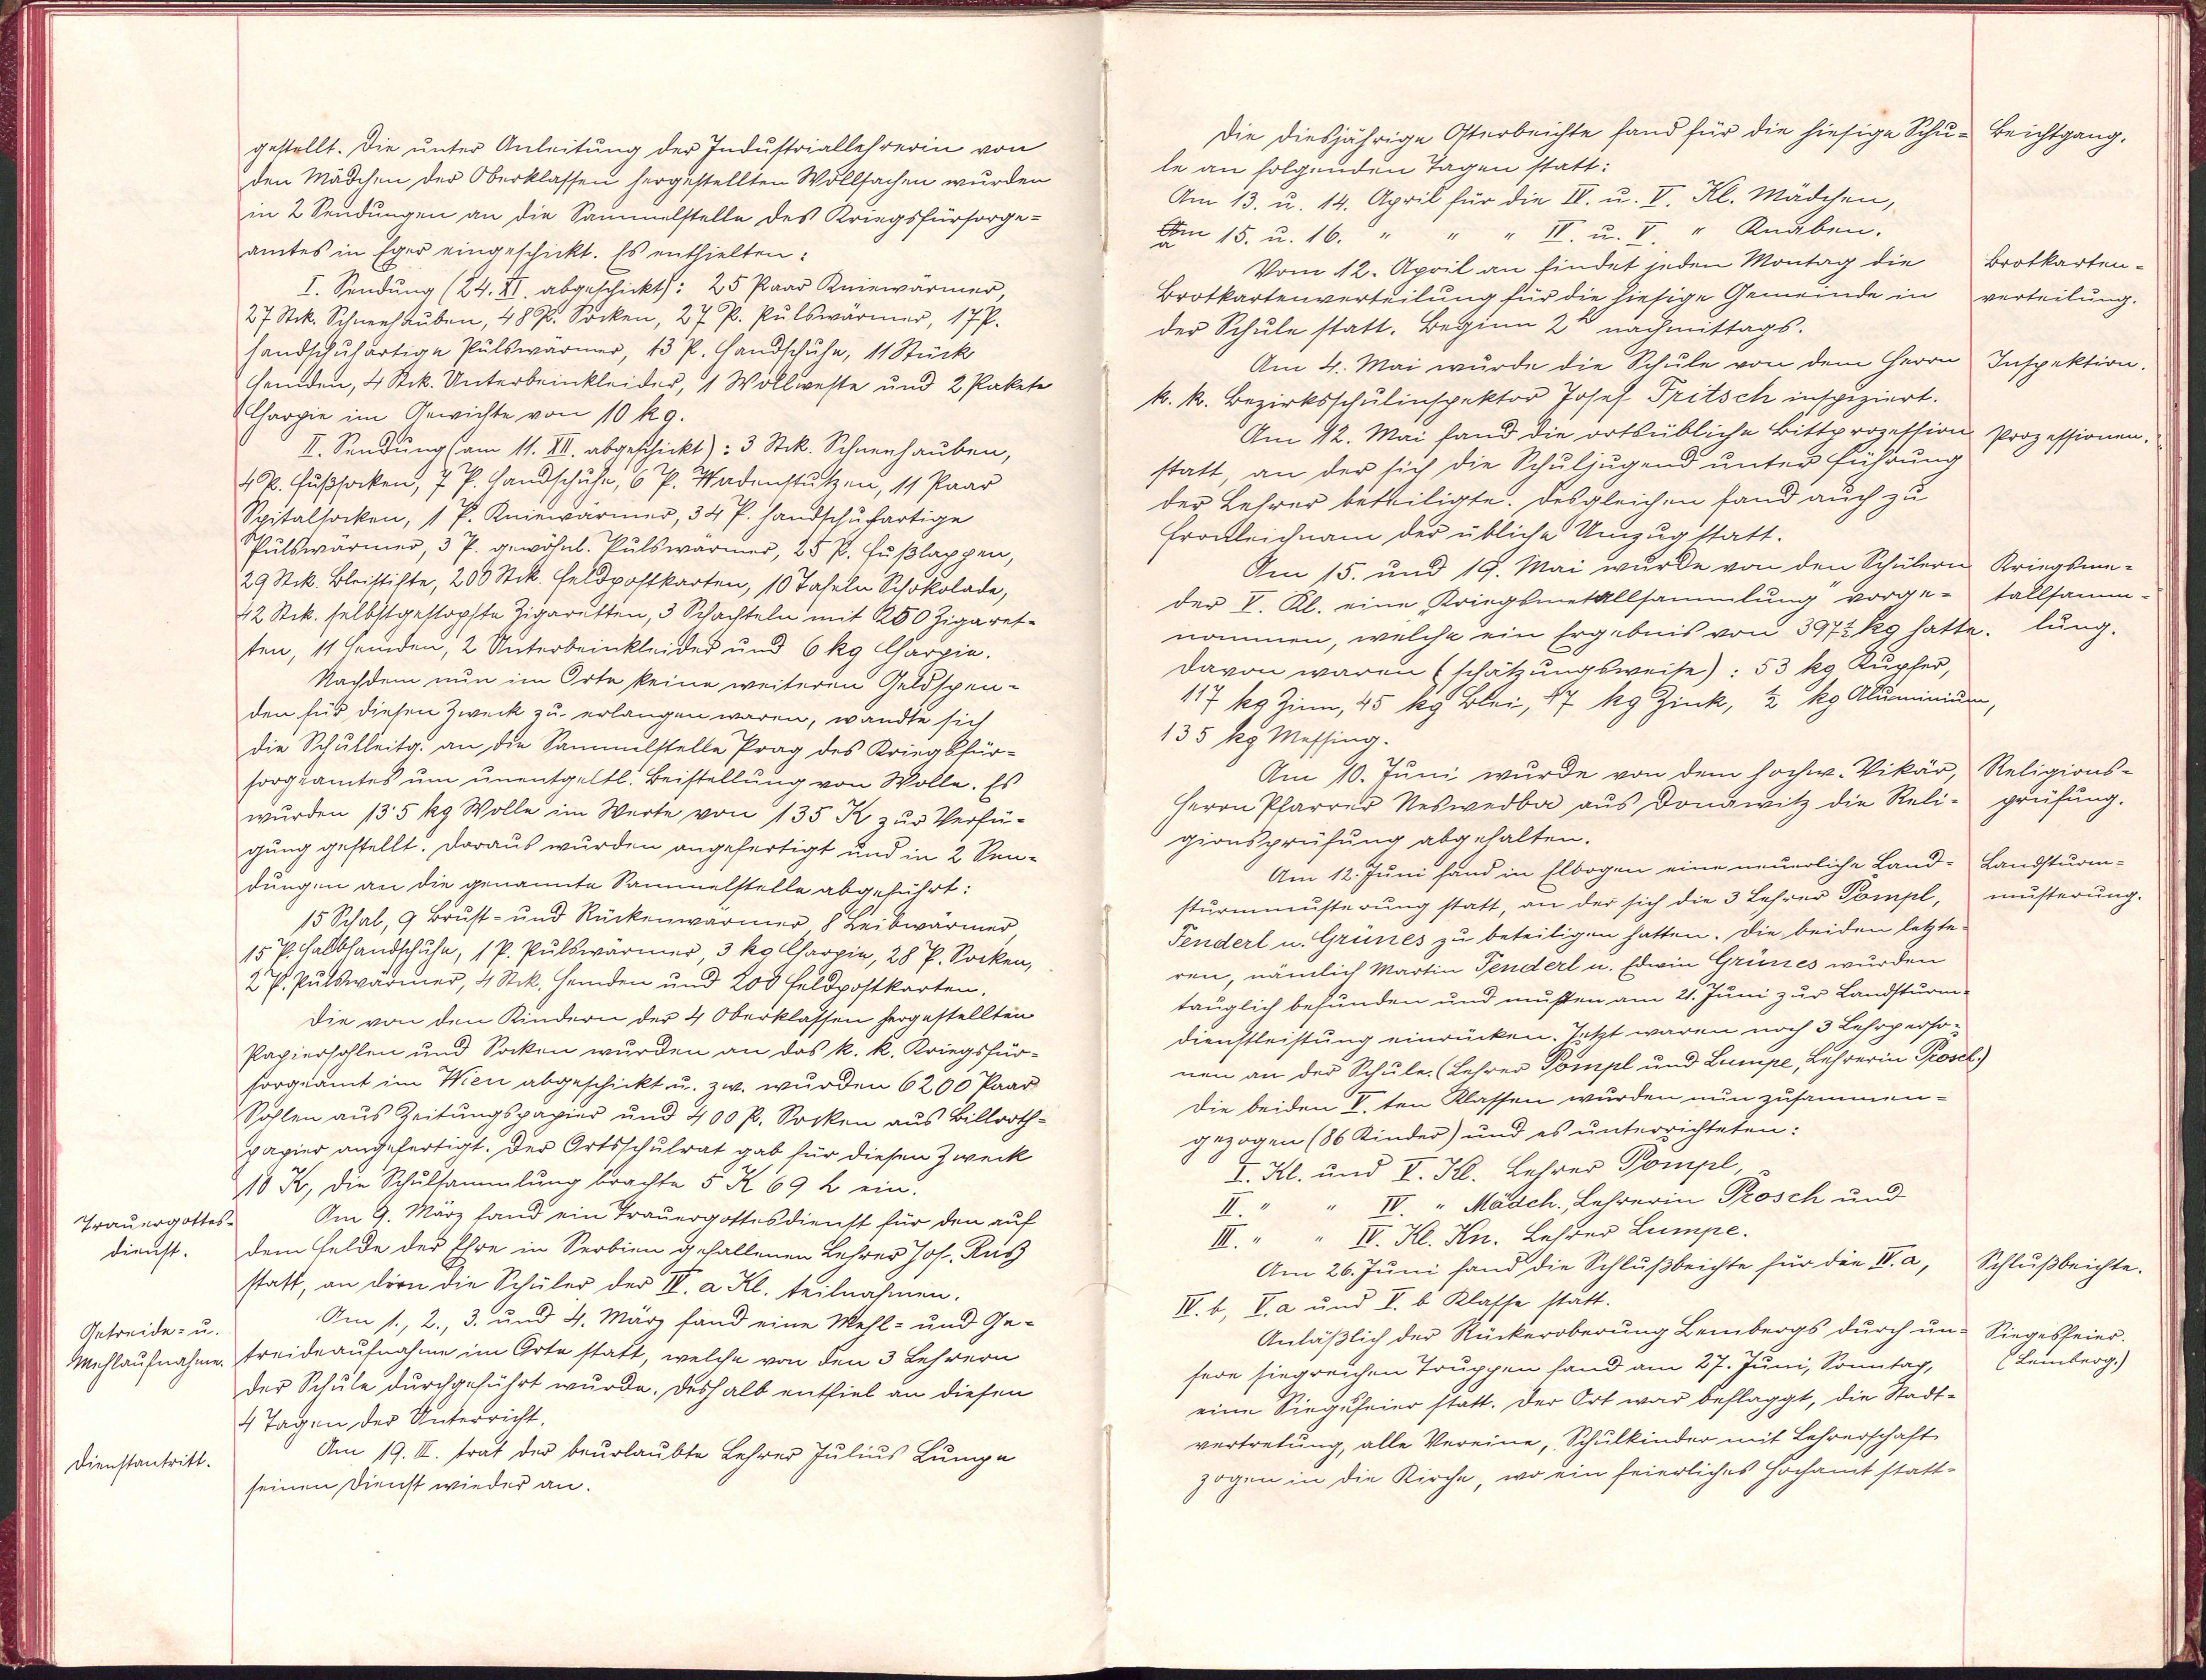 gestellt. Die unter Anleitung der Industriallehrerin von
den Mädchen der Oberklassen hergestellten Wollsachen wurden
in 2 Sendungen an die Sammelstelle des Kriegsfürsorge-
amtes in Eger eingeschickt. Es enthielten:
I. Sendung (24. XI. abgeschickt): 25 Paar Kniewärmer,
27 Stk. Schneehauben, 48 P. Socken, 27 P. Pulswärmer, 17 P.
handschuhartige Pulswärmer, 13 P. Handschuhe, 11 Stück
Hemden, 4 Stk. Unterbeinkleider, 1 Wollweste und 2 Pakete
Charpie im Gewichte von 10 kg.
II. Sendung (am 11. XII. abgeschickt): 3 Stk. Schneehauben,
4 P. Fußsocken, 7 P. Handschuhe, 6 P. Wadenstutzen, 11 Paar
Spitalsocken, 1 P. Kniewärmer, 34 P. handschuhartige
Pulswärmer, 3 P. gewöhnl. Pulswärmer, 25 P. Fußlappen,
29 Stk. Bleistifte, 200 Stk. Feldpostkarten, 10 Tafeln Schokolade,
42 Stk. selbstgestopfte Zigaretten, 3 Schachteln mit 250 Zigaret-
ten, 11 Hemden, 2 Unterbeinkleider und 6 kg Charpie.
Nachdem nun im Orte keine weiteren Geldspen-
den für diesen Zweck zu erlangen waren, wandte sich
die Schulleitg. an die Sammelstelle Prag des Kriegsfür-
sorgeamtes um unentgeltl. Beistellung von Wolle. Es
wurden 13·5 kg Wolle im Werte von 135 K zur Verfü-
gung gestellt. Daraus wurden angefertigt und in 2 Sen-
dungen an die genannte Sammelstelle abgeführt:
15 Schal, 9 Brust- und Rückenwärmer, 8 Leibwärmer,
15 P. Halbhandschuhe, 1 P. Pulswärmer, 3 kg Charpie, 28 P. Socken,
2 P. Pulswärmer, 4 Stk. Hemden und 200 Feldpostkarten.
Die von den Kindern der 4 Oberklassen hergestellten
Papiersohlen und Socken wurden an das k. k. Kriegsfür-
sorgeamt im Wien abgeschickt u. zw. wurden 6200 Paar
Sohlen aus Zeitungspapier und 400 P. Socken aus Billroth-
papier angefertigt. Der Ortsschulrat gab für diesen Zweck
10 K, die Schulsammlung brachte 5 K 69 h ein.
Trauergottes-
dienst.
Am 9. März fand ein Trauergottesdienst für den auf
dem Felde der Ehre in Serbien gefallenen Lehrer Jos. Ruß
statt, an dem die Schüler der IV. a Kl. teilnahmen.
Getreide- u.
Mehlaufnahme.
Am 1., 2., 3. und 4. März fand eine Mehl- und Ge-
treideaufnahme im Orte statt, welche von den 3 Lehrern
der Schule durchgeführt wurde. Deshalb entfiel an diesen
4 Tagen der Unterricht.
Dienstantritt.
Am 19. III. trat der beurlaubte Lehrer Julius Lumpe
seinen Dienst wieder an.
Die diesjährige Osterbeichte fand für die hiesige Schu-
le an folgenden Tagen statt:
Beichtgang.
Am 13. u. 14. April für die IV. u. V. Kl. Mädchen,
Am 15. u. 16. " " " IV. u. V. " Knaben.
Vom 12. April an findet jeden Montag die
Brotkartenverteilung für die hiesige Gemeinde in
der Schule statt. Beginn 2h nachmittags.
Brotkarten-
verteilung.
Am 4. Mai wurde die Schule von dem Herrn
k. k. Bezirksschulinspektor Josef Fritsch inspiziert.
Inspektion.
Am 12. Mai fand die ortsübliche Bittprozession
statt, an der sich die Schuljugend unter Führung
der Lehrer beteiligte. Desgleichen fand auch zu
Fronleichnam der übliche Umzug statt.
Prozessionen.
Am 15. und 19. Mai wurde von den Schülern
der V. Kl. eine „Kriegsmetallsammlung" vorge-
nommen, welche ein Ergebnis von 397½ kg hatte.
Kriegsme-
tallsamm-
lung.
Davon waren (schätzungsweise): 53 kg Kupfer,
117 kg Zinn, 45 kg Blei, 47 kg Zink, ½ kg Aluminium,
135 kg Messing.
Am 10. Juni wurde von dem hochw. Vikär,
Herrn Pfarrer Neswedba aus Donawitz die Reli-
gionsprüfung abgehalten.
Religions-
prüfung.
Am 12. Juni fand in Elbogen eine neuerliche Land-
sturmmusterung statt, an der sich die 3 Lehrer Pompl,
Tenderl u. Grünes zu beteiligen hatten. Die beiden letzte-
ren, nämlich Martin Tenderl u. Edwin Grünes wurden
tauglich befunden und mußten am 21. Juni zur Landsturm-
dienstleistung einrücken. Jetzt waren noch 3 Lehrperso-
nen an der Schule. (Lehrer Pompl und Lumpe, Lehrerin Prosch.)
Landsturm-
musterung.
Die beiden V. ten Klassen wurden nun zusammen-
gezogen (86 Kinder) und es unterrichteten:
I. Kl. und V. Kl. Lehrer Pompl,
II. " " IV. " Mädch., Lehrerin Prosch und
III. " " IV. Kl. Kn. Lehrer Lumpe.
Am 26. Juni fand die Schlußbeichte für die IV. a,
IV. b, V. a und V. b Klasse statt.
Schlußbeichte.
Anläßlich der Rückeroberung Lembergs durch un-
sere siegreichen Truppen fand am 27. Juni, Sonntag,
eine Siegesfeier statt. Der Ort war beflaggt, die Stadt-
vertretung, alle Vereine, Schulkinder mit Lehrerschaft
zogen in die Kirche, wo ein feierliches Hochamt statt-
Siegesfeier.
(Lemberg.)